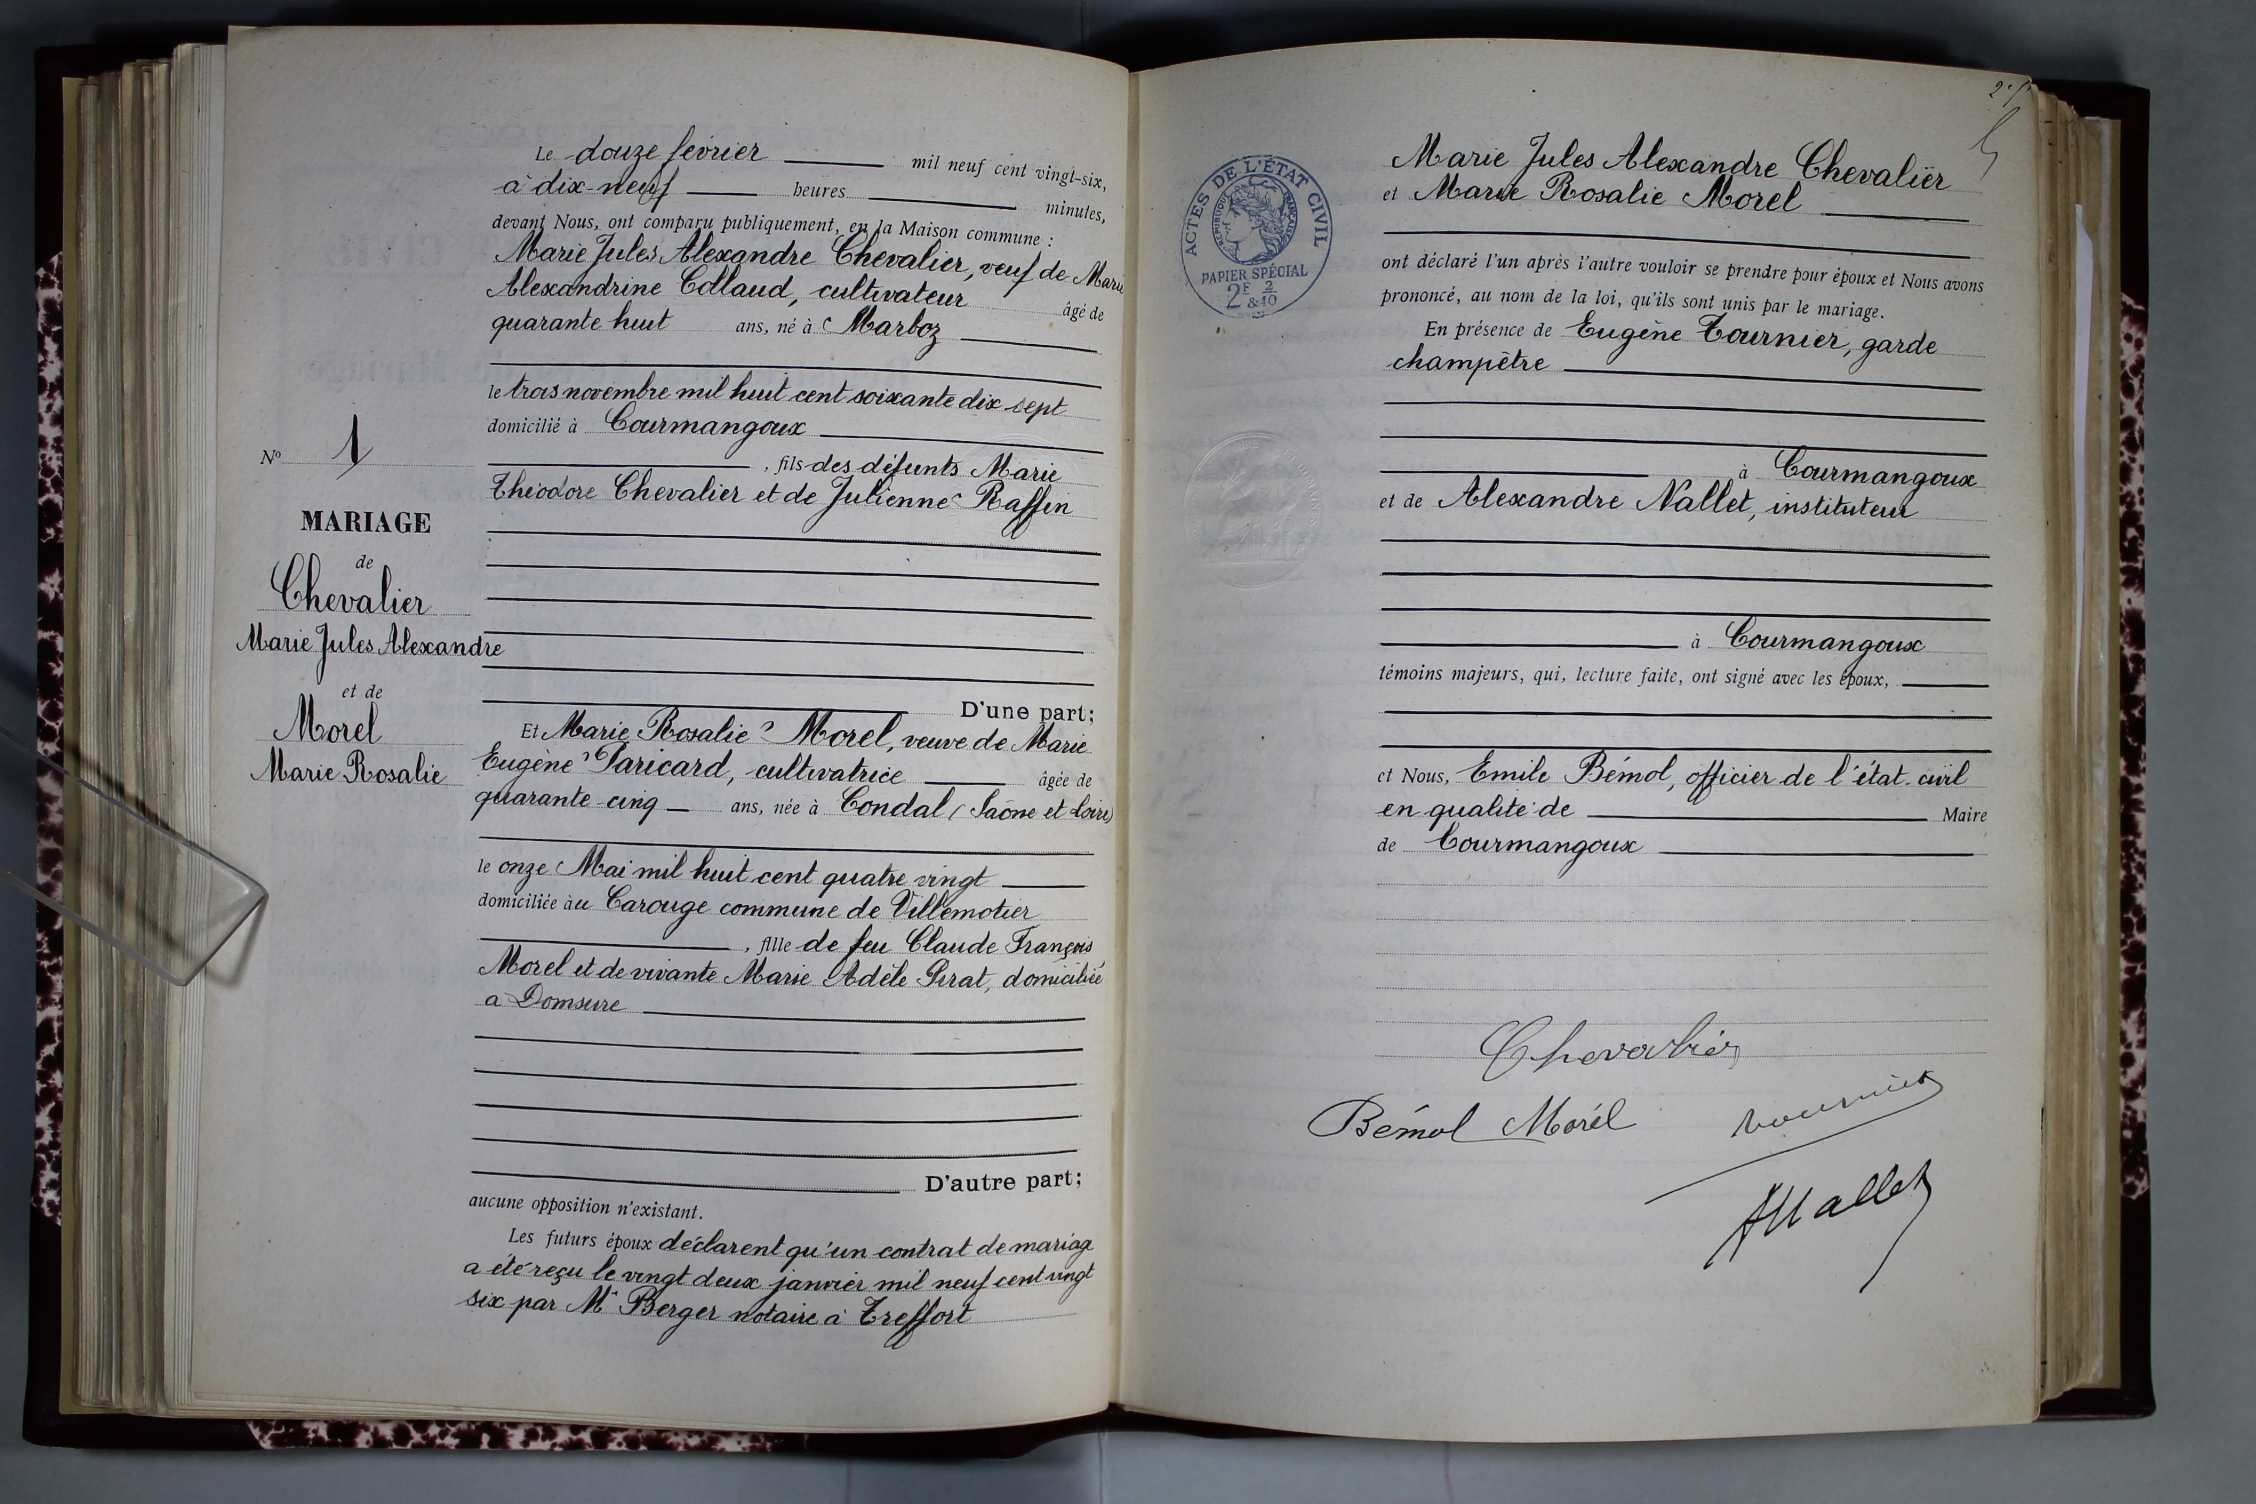 Le douze février mil neuf cent vingt-six,
à dix-neuf heures minutes,
devant Nous, ont comparu publiquement, en la Maison commune :
Marie Jules Alexandre Chevalier, veuf de Marie
Alexandrine Collaud, cultivateur âgé de
quarante huit ans, né à Marboz
le trois novembre mil huit cent soixante dix sept
domicilié à Courmangoux
, fils des défunts Marie
Théodore Chevalier et de Julienne Raffin
D'une part;
Et Marie Rosalie Morel, veuve de Marie
Eugène Paricard, cultivatrice âgée de
quarante-cinq ans, née à Condal (Saône et Loire)
le onze Mai mil huit cent quatre vingt
domiciliée àu Carouge commune de Villemotier
, fille de feu Claude François
Morel et de vivante Marie Adèle Pirat, domiciliée
à Domsure
D'autre part;
aucune opposition n'existant.
Les futurs époux déclarent qu'un contrat de mariag
a été reçu le vingt deux janvier mil neuf cent vingt
six par Me Berger notaire à Treffort
No 1
MARIAGE
de
Chevalier
Marie Jules Alexandre
et de
Morel
Marie Rosalie
ACTES DE L'ÉTAT CIVIL
RÉPUBLIQUE FRANÇAISE
PAPIER SPÉCIAL
2F & 2/10
Marie Jules Alexandre Chevalier
et Marie Rosalie Morel
ont déclaré l'un après l'autre vouloir se prendre pour époux et Nous avons
prononcé, au nom de la loi, qu'ils sont unis par le mariage.
En présence de Eugène Tournier, garde
champêtre
à Courmangoux
et de Alexandre Nallet, instituteur
à Courmangoux
témoins majeurs, qui, lecture faite, ont signé avec les époux,
et Nous, Emile Bémol, officier de l'état-civil
en qualité de Maire
de Courmangoux
Chevalier
Bémol Morél Tournier
ANallet